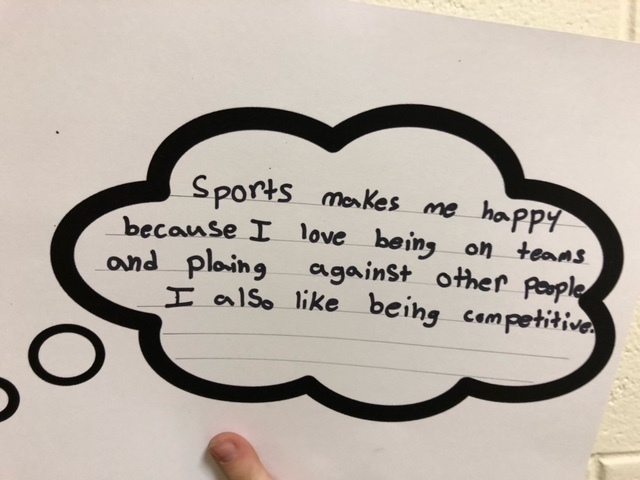 Sports makes me happy
because I love being on teams
and plaing against other people
I also like being competitive.